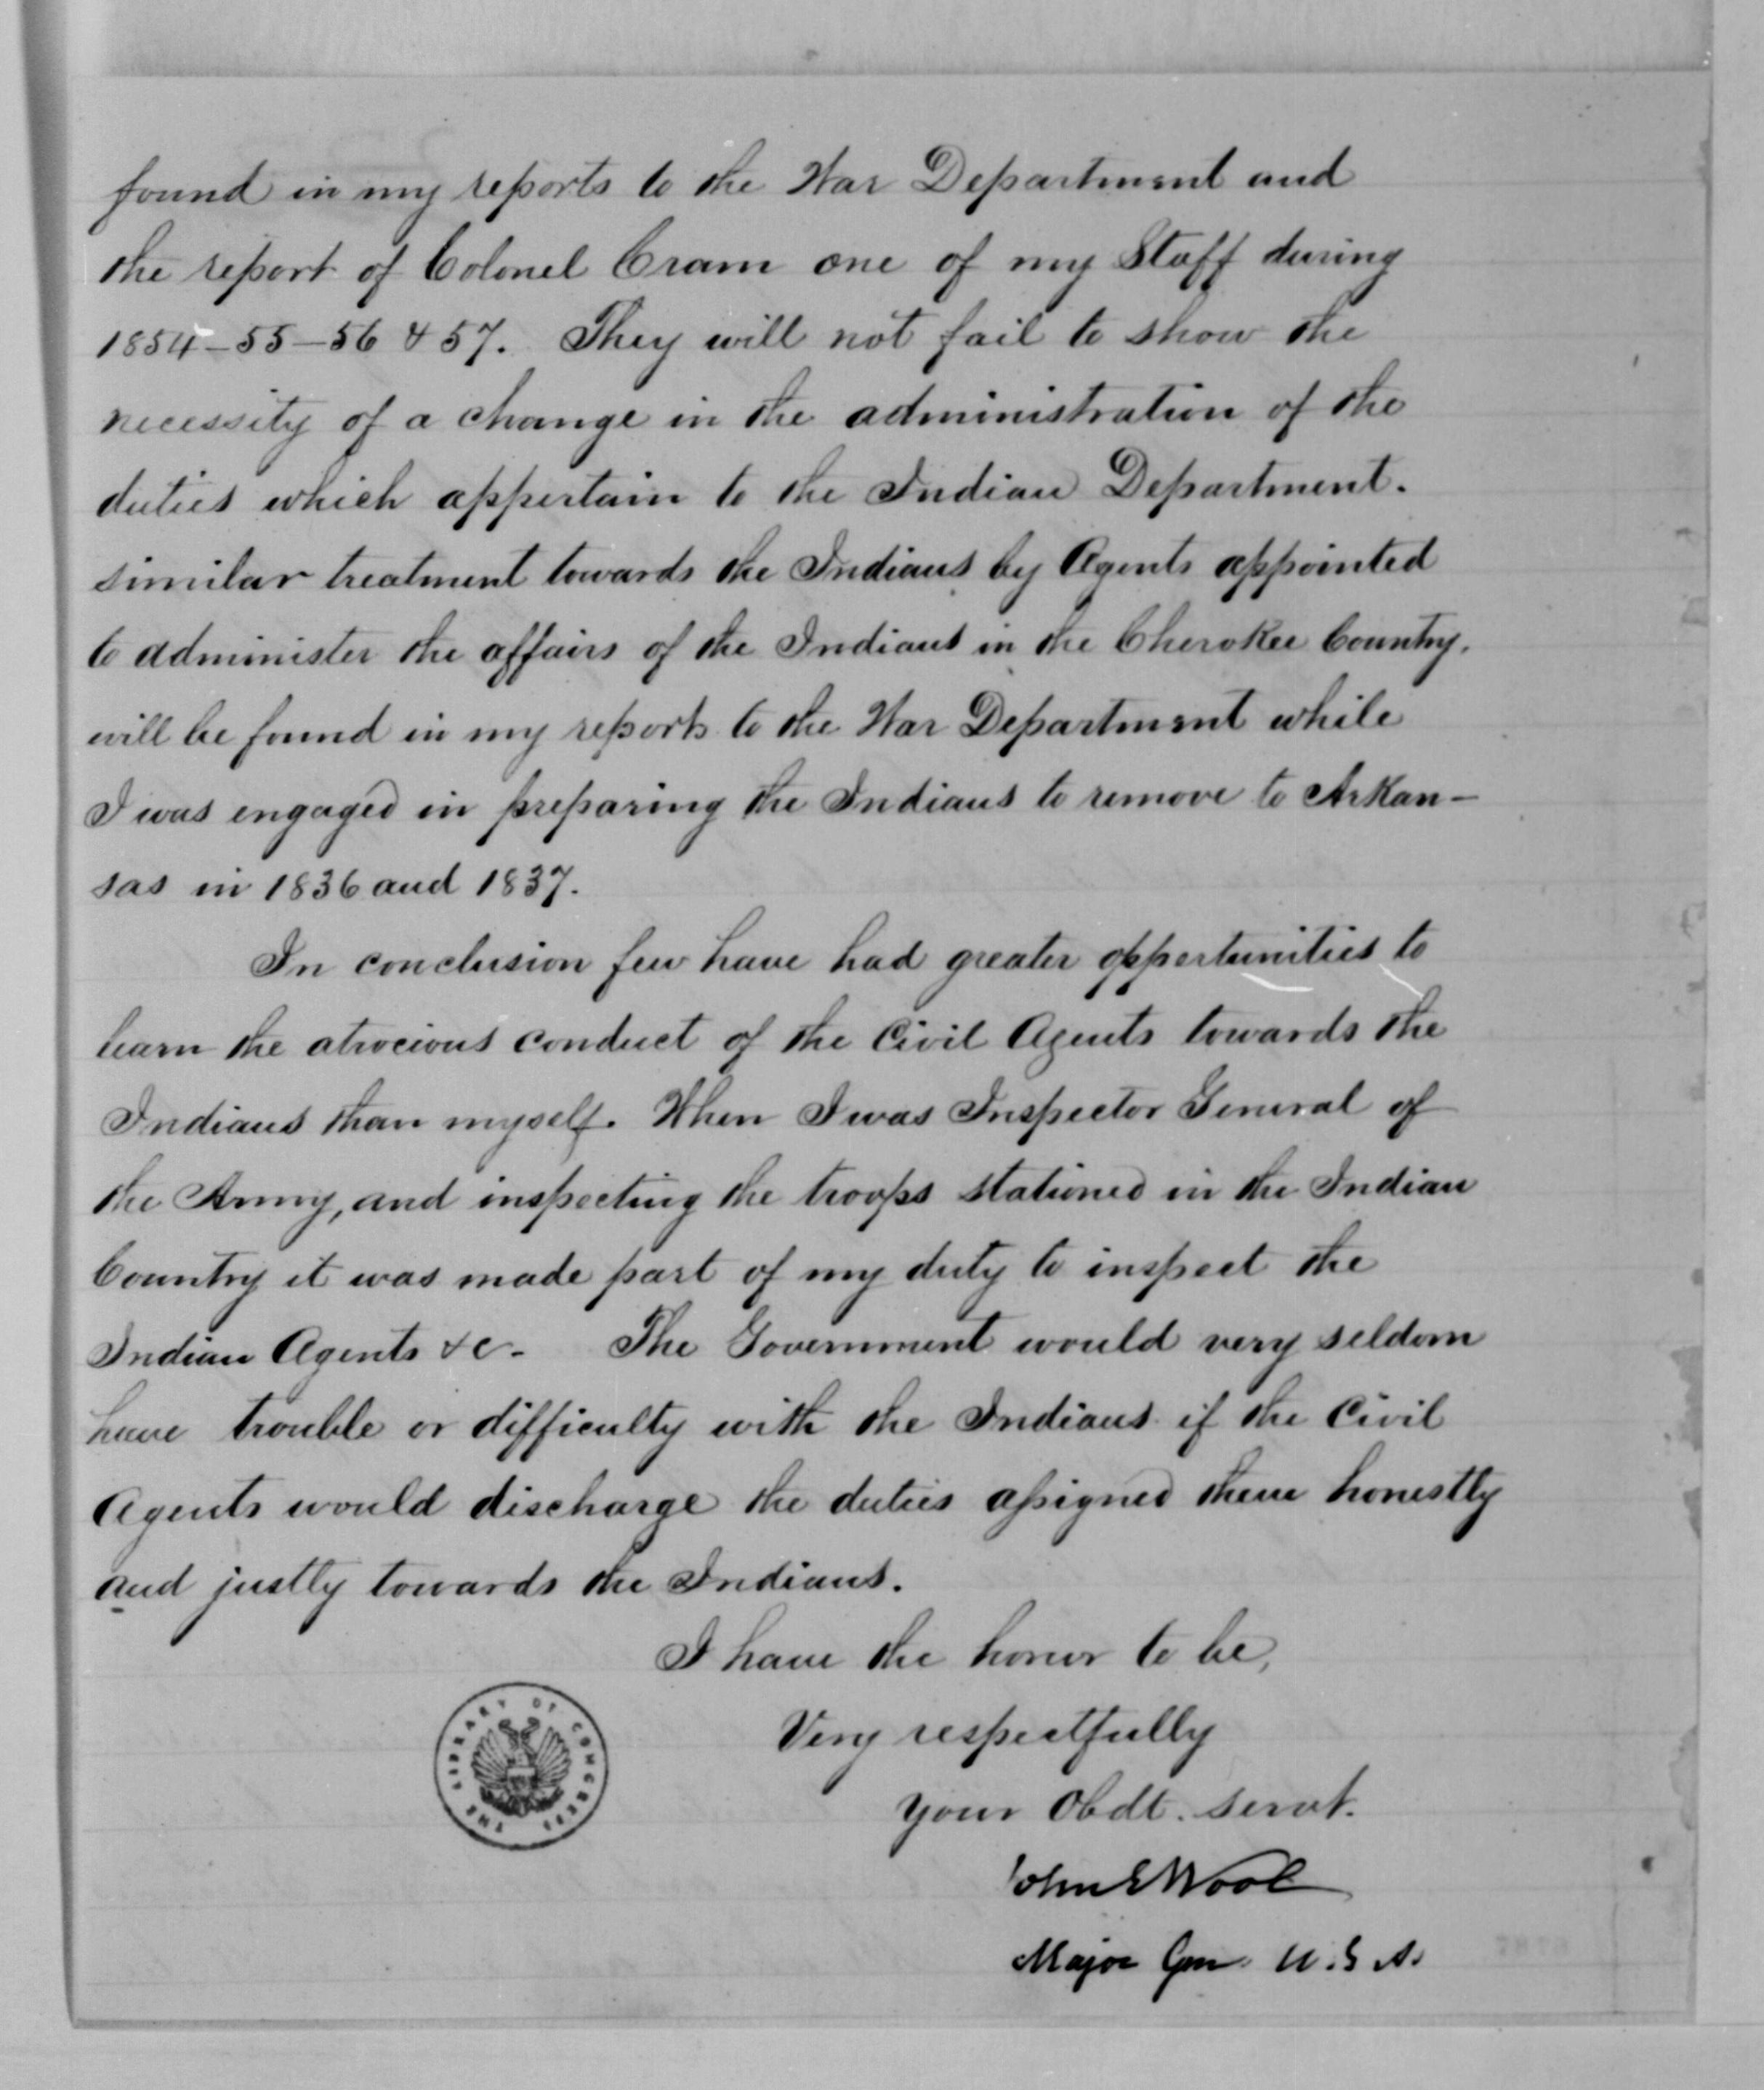 found in my reports to the War Department and
the report of Colonel Cram one of my Staff during
1854-55-56 & 57. They will not fail to show the
necessity of a change in the administration of the
duties which appertain to the Indian Department.
similar treatment towards the Indians by Agents appointed
to administer the affairs of the Indians in the Cherokee Country.
will be found in my reports to the War Department while
I was engaged in preparing the Indians to remove to Arkan-
sas in 1836 and 1837.
In conclusion few have had greater opportunities to
learn the atrocious conduct of the Civil Agents towards the
Indians than myself. When I was Inspector General of
the Army, and inspecting the troops stationed in the Indian
Country it was made part of my duty to inspect the
Indian Agents &c. The Government would very seldom
have trouble or difficulty with the Indians if the Civil
Agents would discharge the duties assigned them honestly
and justly towards the Indians.
I have the honor to be,
Very respectfully
Your Obdt. servt.
John E Wool
Major Gen. U.S A.
THE LIBRARY OF CONGRESS